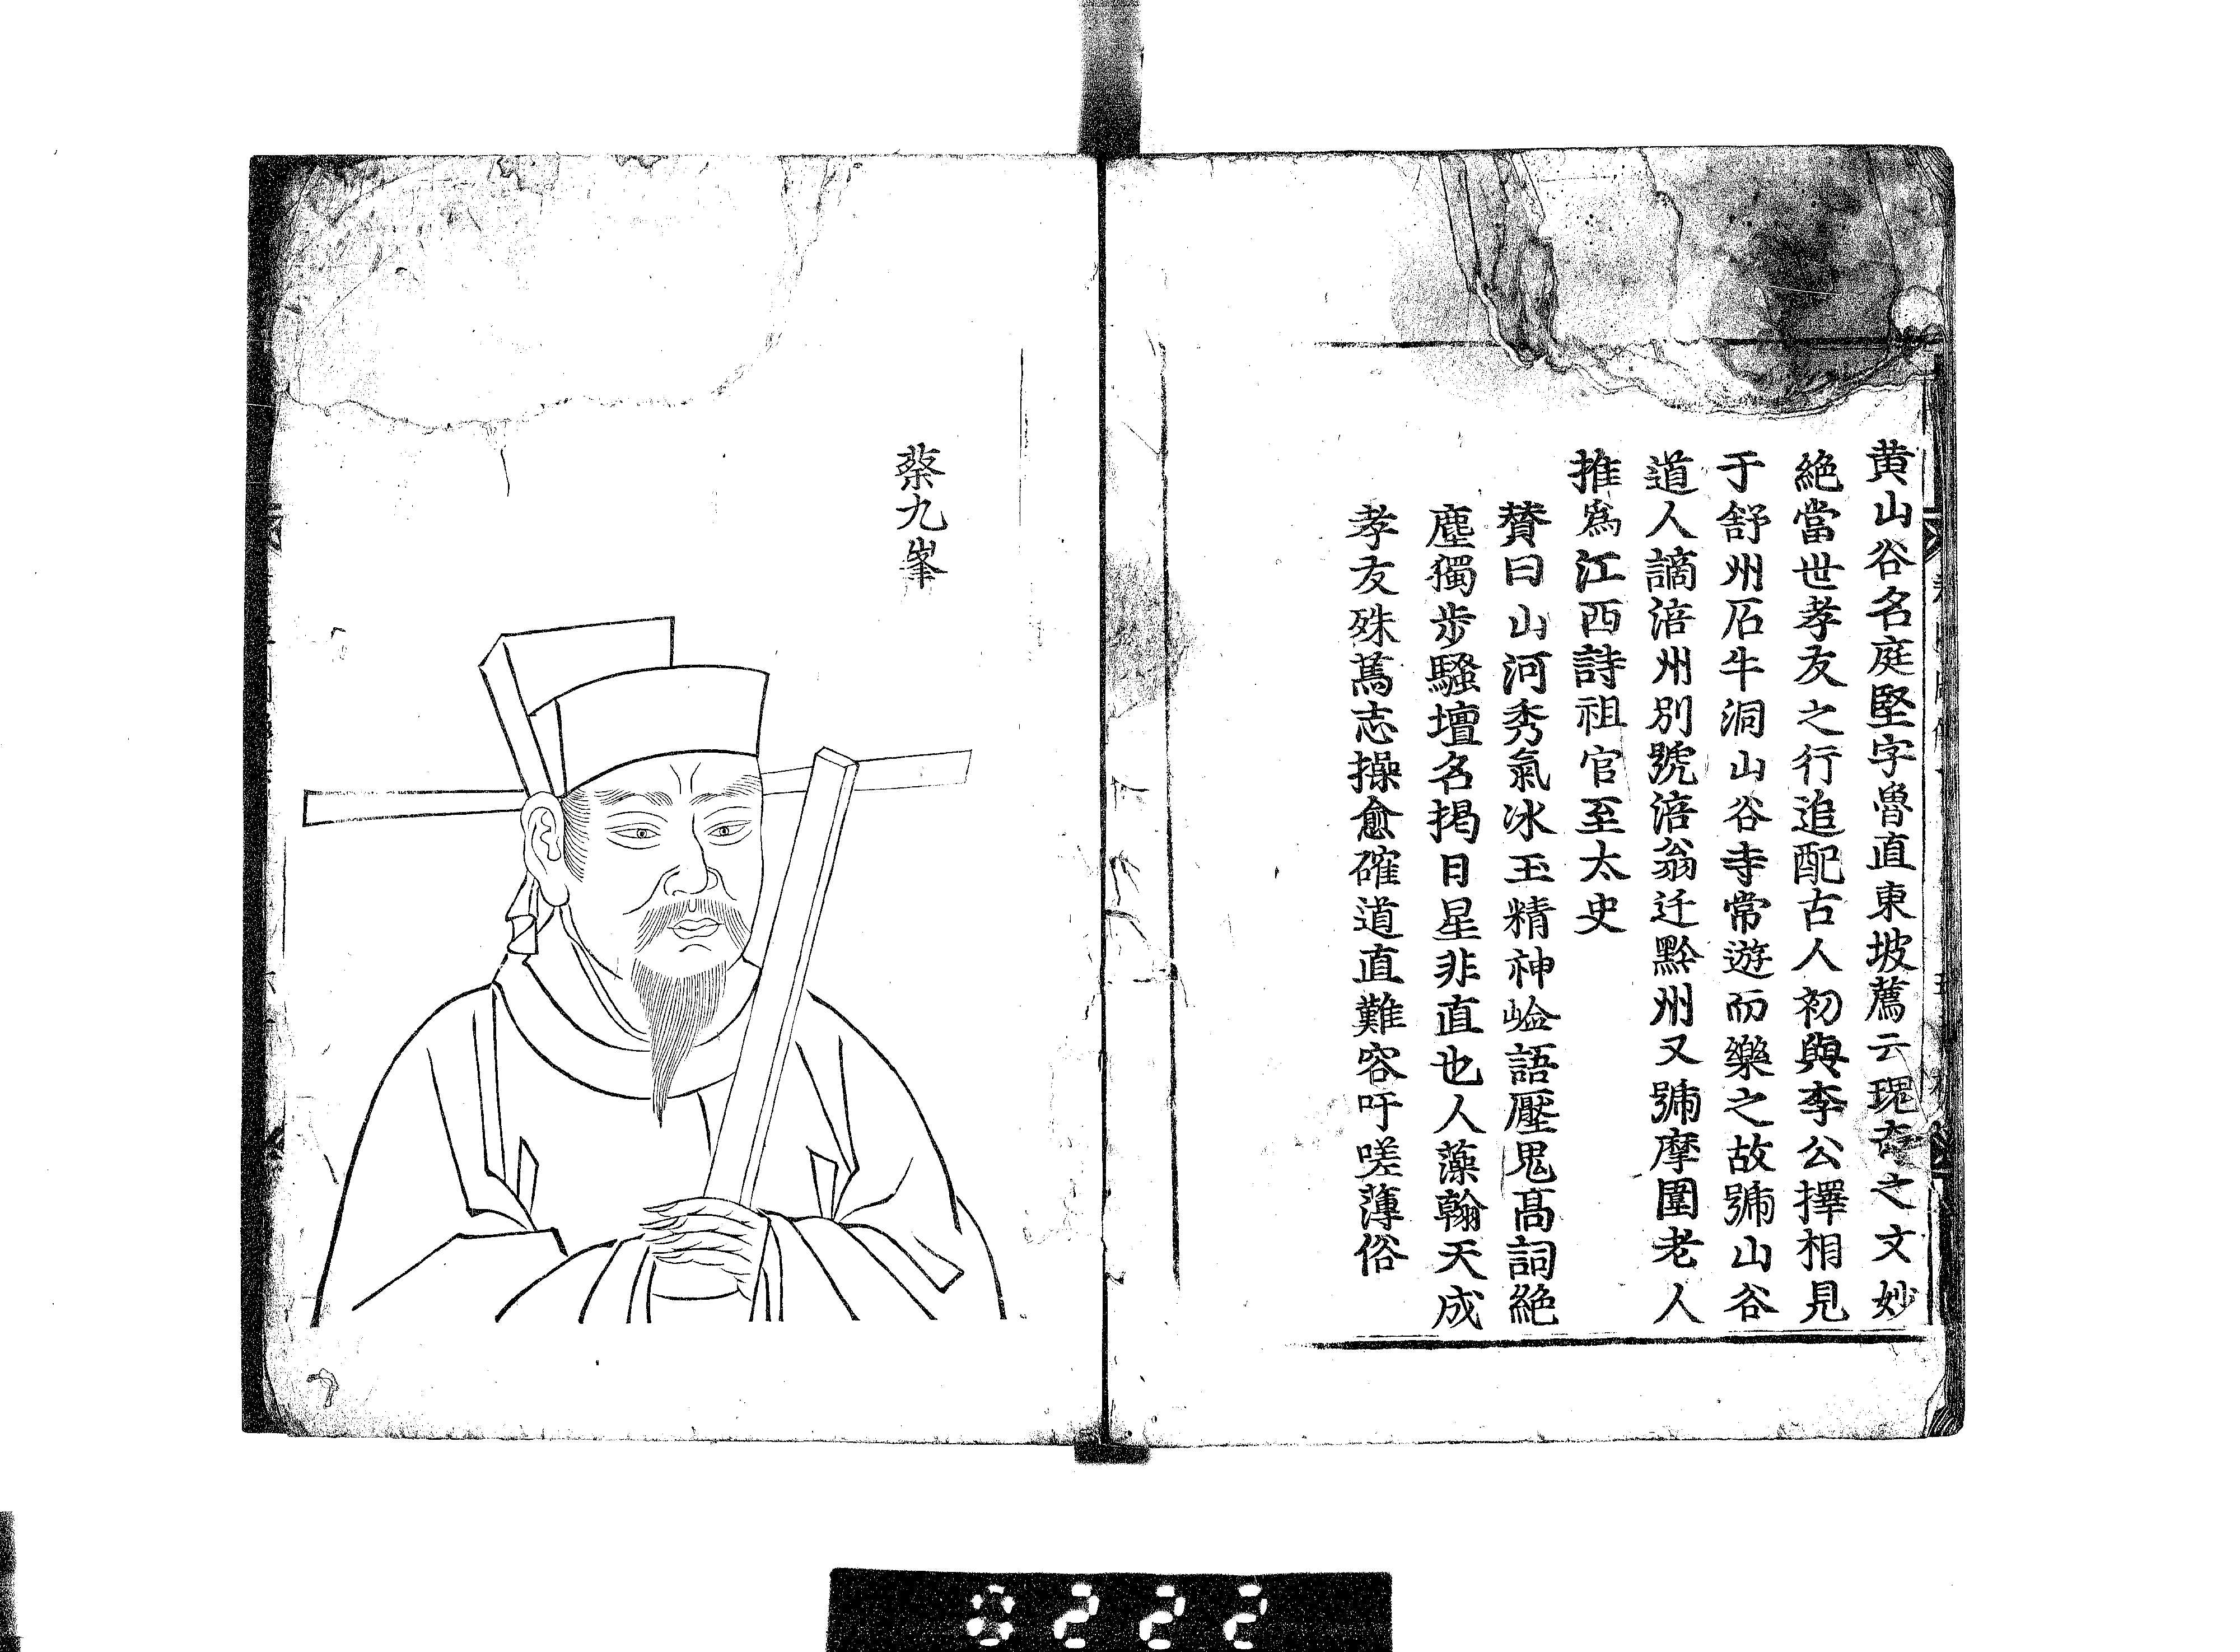 黄山谷名庭堅字魯直東坡薦云瑰竒之文妙
絶當世孝友之行追配古人初與李公擇相見
于舒州石牛洞山谷寺常遊而樂之故號山谷
道人謫涪州别號涪翁迁黔州又號摩圍老人
推爲江西詩祖官至太史
賛曰山河秀氣冰玉精神嶮語壓鬼髙詞絶
塵獨步騷壇名揭日星非直也人藻翰天成
孝友殊蔫志操愈確道直難容吁嗟薄俗
蔡九峯
0222